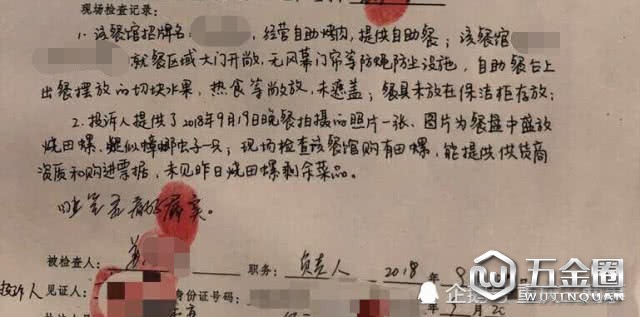 现场检查记录：
1.该餐馆招牌名：，经营自助烤肉，提供自助餐；该餐馆
就餐区域大门开敞，无风幕门帘等防蝇防尘设施，自助餐台上
出餐摆放的切块水果，热食等敞放，未遮盖；餐具未放在保洁柜存放；
2.投诉人提供了2018年9月19日晚餐拍摄的照片一张、图片为餐盘中盛放
烧田螺、疑似蟑螂虫子一只；现场检查该餐馆购有田螺，能提供供货商
资质和购进票据，未见昨日烧田螺剩余菜品。
属实。
被检查人： 职务：负责人 2018年9
投诉人 见证人： 身份证号码：
年9月20
五金圈